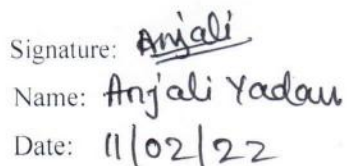 Signature: Anjali
Name: Anjali Yadav
Date: 11/02/22